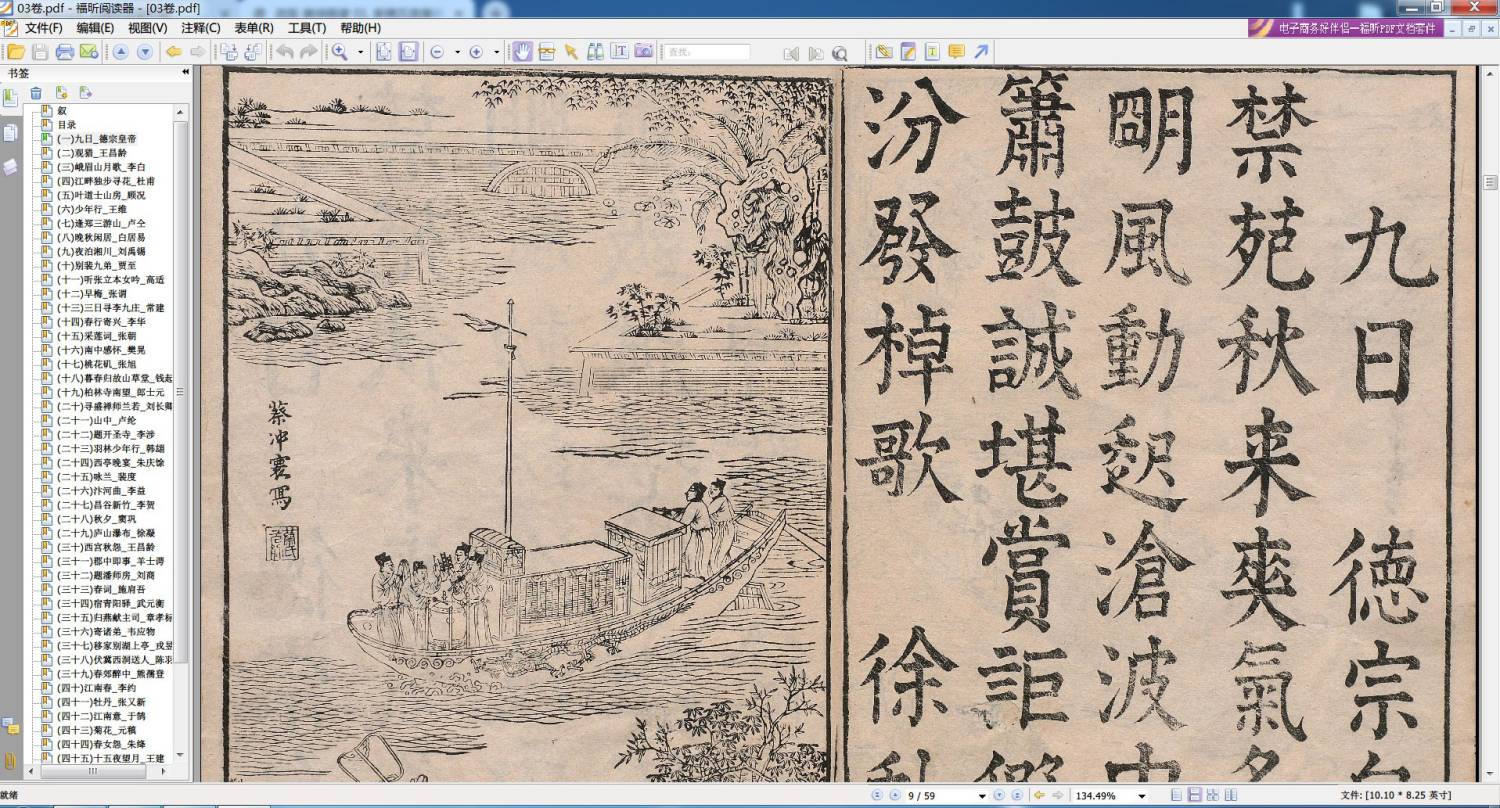 03卷.pdf - 福昕阅读器 - [03卷.pdf]
文件(F) 编辑(E) 视图(V) 注释(C) 表单(R) 工具(T) 帮助(H)
电子商务好伴侣—福昕PDF文档套件
查找:
书签
叙
目录
(一)九日_德宗皇帝
(二)观猎_王昌龄
(三)峨眉山月歌_李白
(四)江畔独步寻花_杜甫
(五)叶道士山房_顾况
(六)少年行_王维
(七)逢郑三游山_卢仝
(八)晚秋闲居_白居易
(九)夜泊湘川_刘禹锡
(十)别裴九弟_贾至
(十一)听张立本女吟_高适
(十二)早梅_张谓
(十三)三日寻李九庄_常建
(十四)春行寄兴_李华
(十五)采莲词_张朝
(十六)南中感怀_樊晃
(十七)桃花矶_张旭
(十八)暮春归故山草堂_钱起
(十九)柏林寺南望_郎士元
(二十)寻盛禅师兰若_刘长卿
(二十一)山中_卢纶
(二十二)题开圣寺_李涉
(二十三)羽林少年行_韩翃
(二十四)西亭晚宴_朱庆馀
(二十五)咏兰_裴度
(二十六)汴河曲_李益
(二十七)昌谷新竹_李贺
(二十八)秋夕_窦巩
(二十九)庐山瀑布_徐凝
(三十)西宫秋怨_王昌龄
(三十一)郡中即事_羊士谔
(三十二)题潘师房_刘商
(三十三)春词_施肩吾
(三十四)宿青阳驿_武元衡
(三十五)归燕献主司_章孝标
(三十六)寄诸弟_韦应物
(三十七)移家别湖上亭_戎昱
(三十八)伏冀西洞送人_陈羽
(三十九)春郊醉中_熊孺登
(四十)江南春_李约
(四十一)牡丹_张又新
(四十二)江南意_于鹄
(四十三)菊花_元稹
(四十四)春女怨_朱绛
(四十五)十五夜望月_王建
九日 德宗
禁苑秋来爽氣
朙風動起滄波
簫鼓誠堪賞詎
汾發棹歌 徐
蔡冲寰寫
就绪
9 / 59
134.49%
文件: [10.10 * 8.25 英寸]